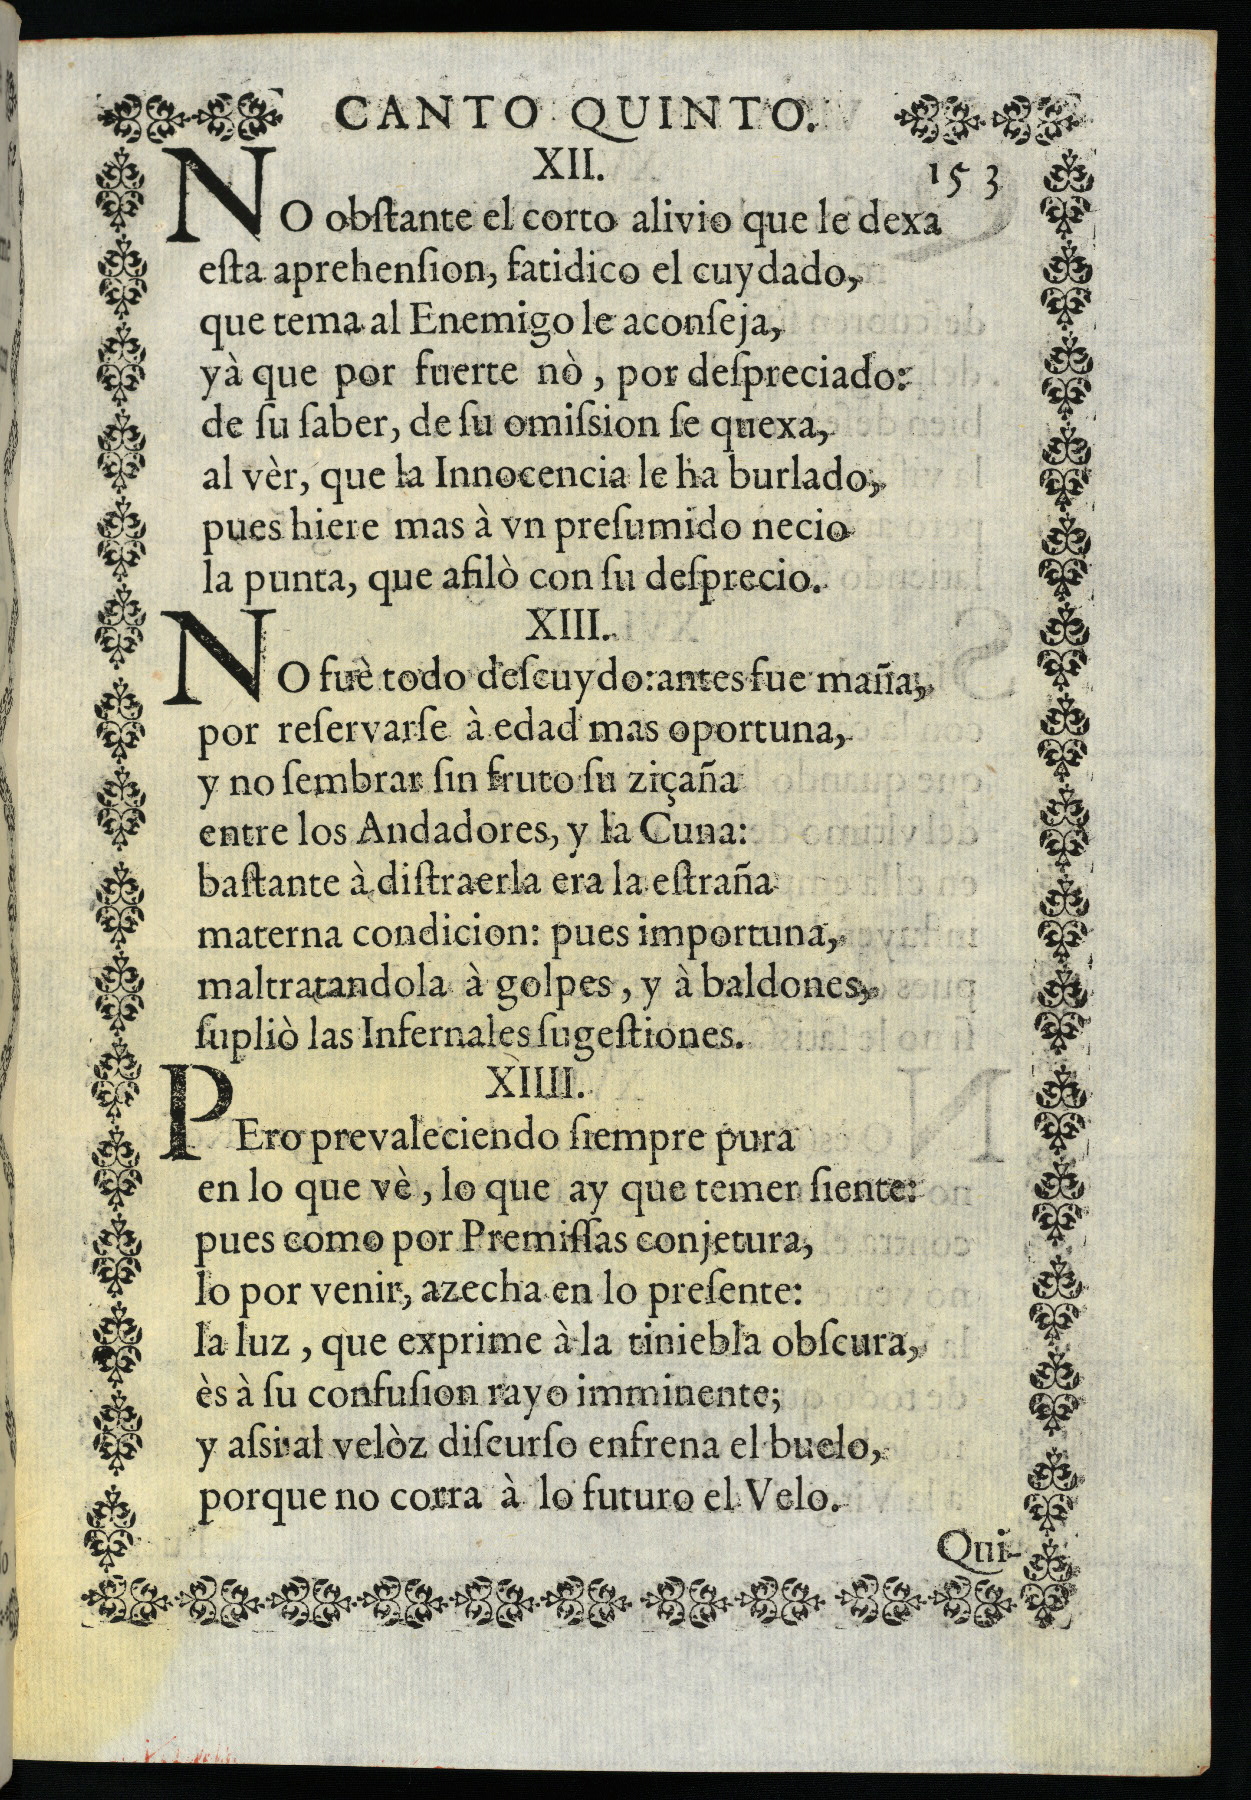 CANTO QUINTO.
153
XII.
NO obſtante el corto alivio que le dexa
eſta aprehenſion, fatidico el cuydado,
que tema al Enemigo le aconſeja,
yà que por fuerte nò, por deſpreciado:
de ſu ſaber, de ſu omiſsion ſe quexa,
al vèr, que la Innocencia le ha burlado,
pues hiere mas à vn preſumido necio
la punta, que afilò con ſu deſprecio.
XIII.
NO fuè todo deſcuydo: antes fue maña,
por reſervarſe à edad mas oportuna,
y no ſembrar ſin fruto ſu ziçaña
entre los Andadores, y la Cuna:
baſtante à diſtraerla era la eſtraña
materna condicion: pues importuna,
maltratandola à golpes, y à baldones,
ſupliò las Infernales ſugeſtiones.
XIIII.
PEro prevaleciendo ſiempre pura
en lo que vè, lo que ay que temer ſiente:
pues como por Premiſſas conjetura,
lo por venir, azecha en lo preſente:
la luz, que exprime à la tiniebla obſcura,
ès à ſu confuſion rayo imminente;
y aſsi al velòz diſcurſo enfrena el buelo,
porque no corra à lo futuro el Velo.
Qui-